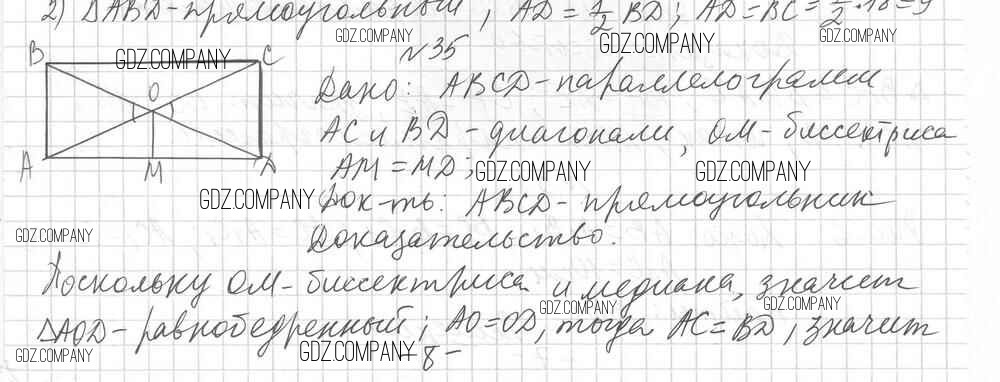 2) ΔABD-прямоугольный; AD = 1/2 BD; AD = BC = 1/2 · 18 = 9
GDZ.COMPANY GDZ.COMPANY GDZ.COMPANY
N35
B GDZ.COMPANY C
Дано: ABCD-параллелограмм
O
AC и BD - диагонали, OM-биссектриса
A M D
AM = MD; GDZ.COMPANY GDZ.COMPANY
GDZ.COMPANY Док-ть: ABCD-прямоугольник
GDZ.COMPANY
Доказательство.
Поскольку OM-биссектриса и медиана, значит
GDZ.COMPANY GDZ.COMPANY
ΔAOD-равнобедренный; AO=OD, тогда AC=BD, значит
GDZ.COMPANY GDZ.COMPANY
- 8 -